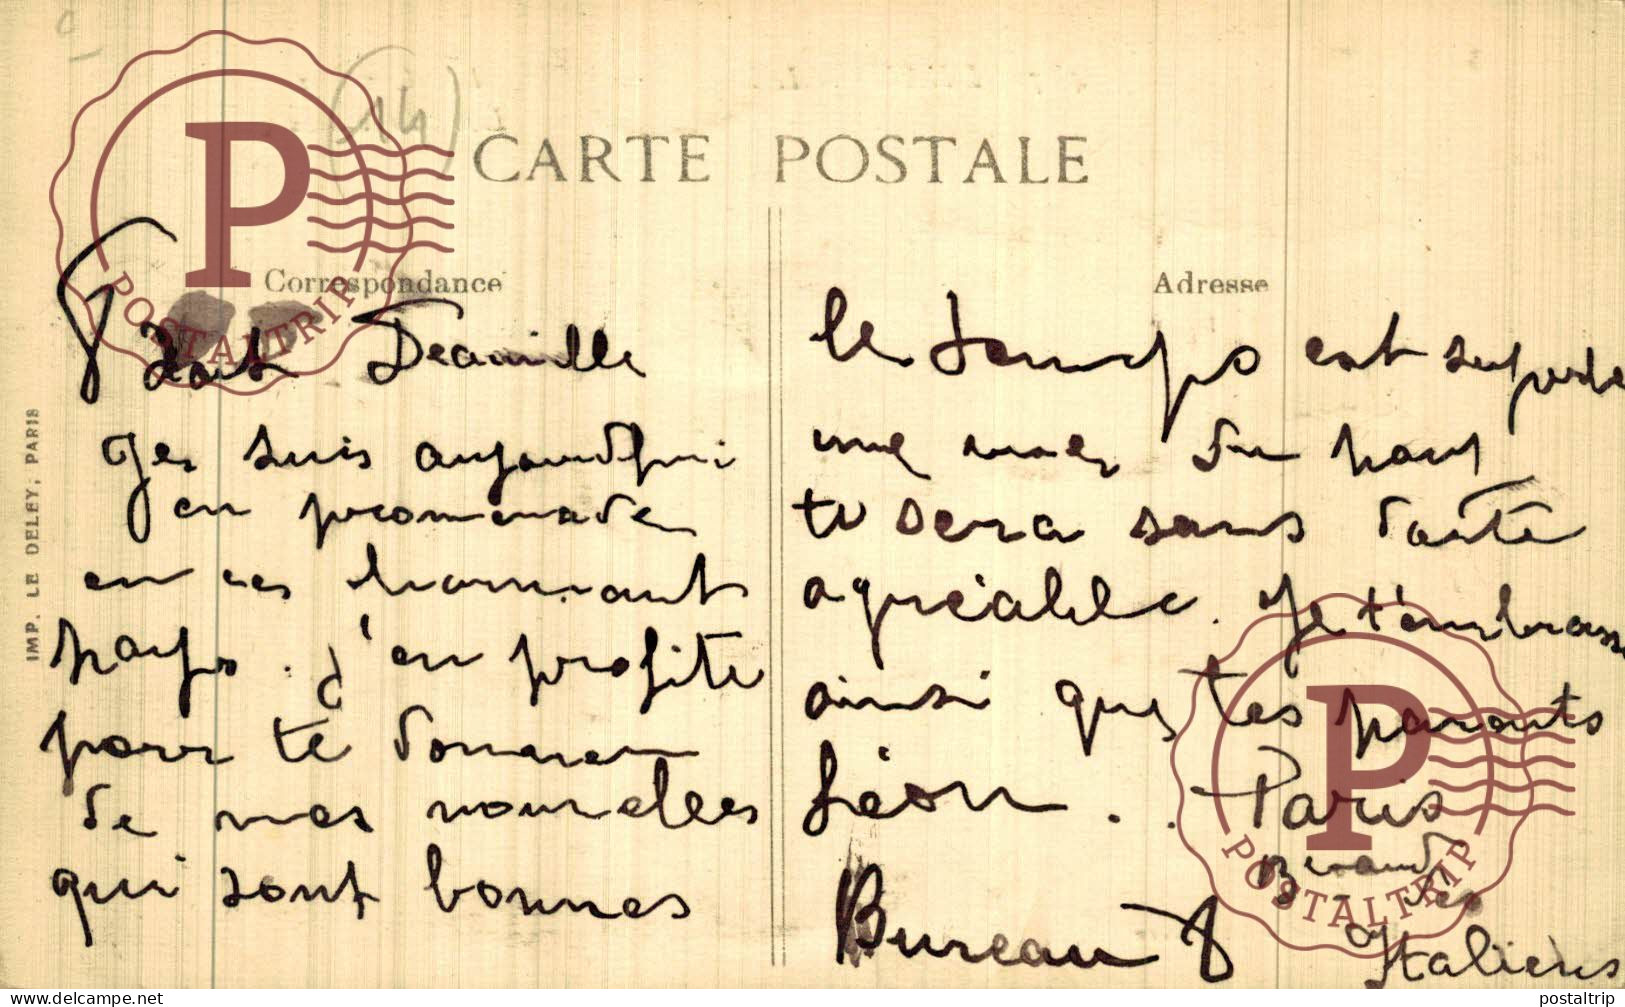 (14)
CARTE POSTALE
Correspondance
Adresse
IMP. LE DELEY, PARIS
Deauville
Je suis aujourd'hui
en promenade
en ce charmant
pays. j'en profite
pour te donner
de mes nouvelles
qui sont bonnes
le temps est superbe
une mer du
te sera sans doute
agréable. Je t'embrasse
ainsi que tes parents
Léon. . Paris
Bureau 8
Italiens
POSTALTRIP
POSTALTRIP
delcampe.net
postaltrip